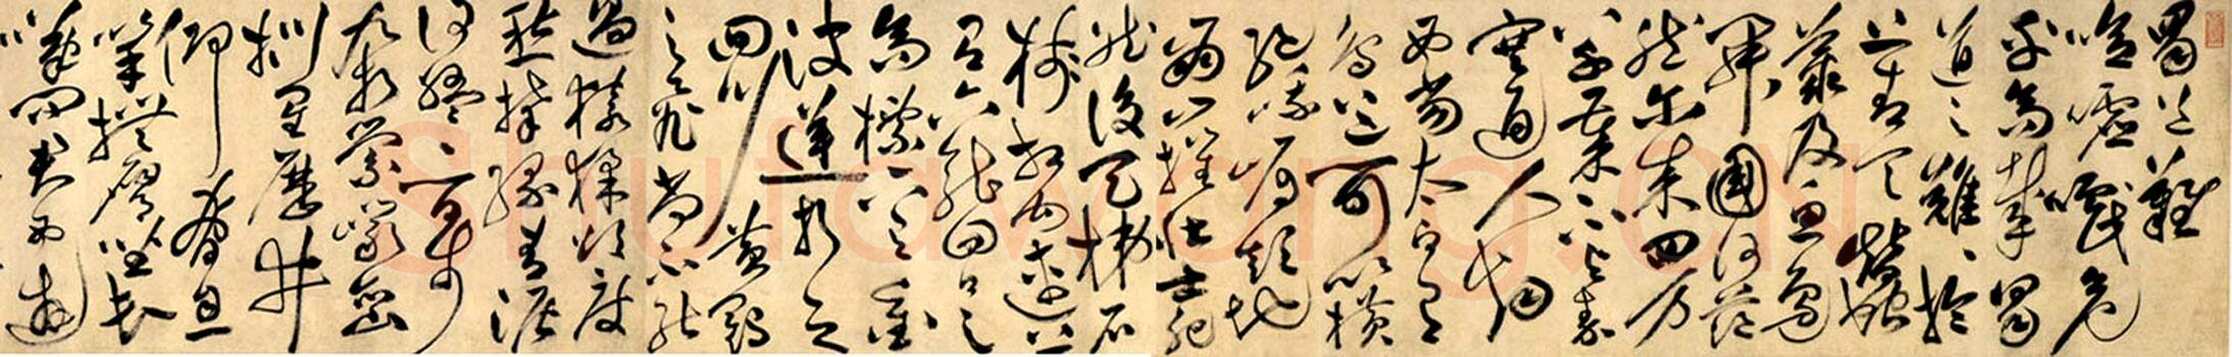 蜀道難
噫嘘嚱危
乎高哉蜀
道之難難於
上青天蠶
叢及魚鳧
開國何茫
然爾來四萬
八千歲不與秦
塞通人烟
西當太白有
鳥道可以橫
絕峨眉巔地
崩山摧壯士死
然後天梯石
棧相鉤連上
有六龍回日之
高標下有衝
波逆折之
回川黃鶴
之飛尚不能
過猿猱欲度
愁攀緣青泥
何盤盤百步
九折縈巖巒
捫參歷井
仰脅息
以手撫膺坐長
嘆問君西遊
Shufawang.CN